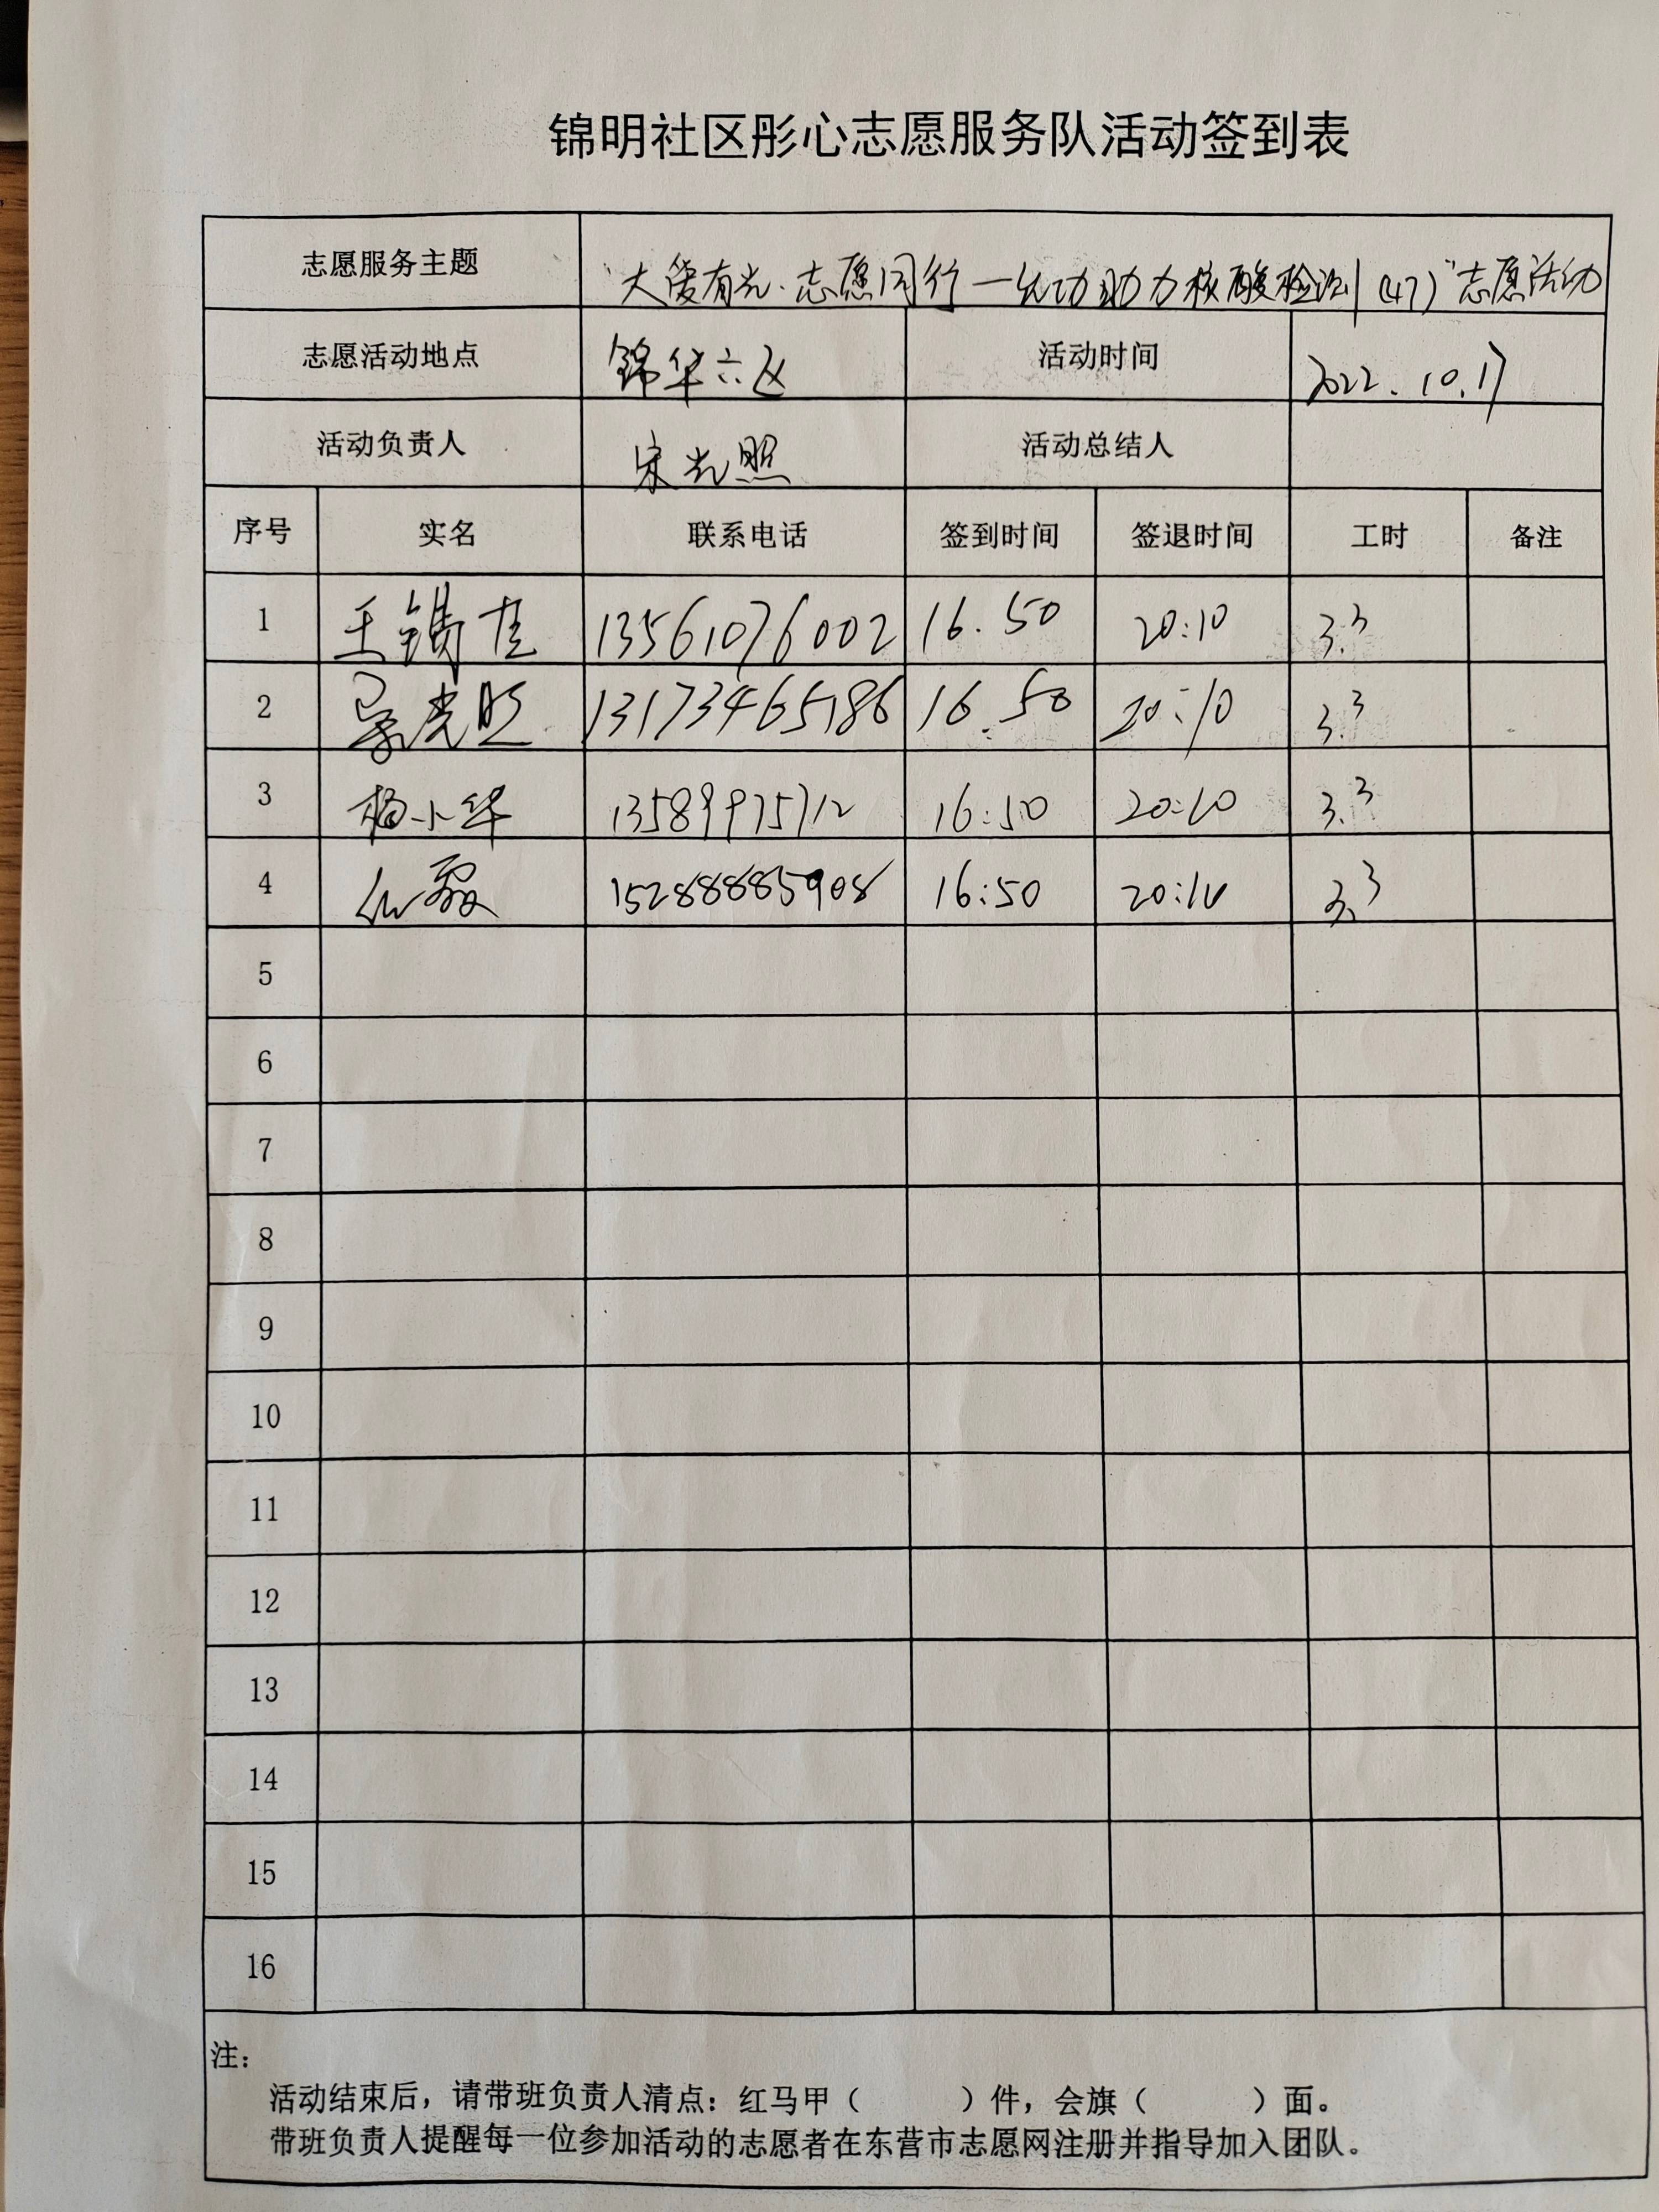 锦明社区彤心志愿服务队活动签到表
志愿服务主题 "大爱有光·志愿同行—化功助力核酸检测(47)"志愿活动
志愿活动地点 锦华六区 活动时间 2022.10.17
活动负责人 宋光照 活动总结人
序号 实名 联系电话 签到时间 签退时间 工时 备注
1 王锡吉 13561076002 16.50 20:10 3.3
2 光照 13173465186 16.50 20:10 3.3
3 杨小华 13589975712 16:50 20:10 3.3
4 15288885908 16:50 20:10 3.3
5
6
7
8
9
10
11
12
13
14
15
16
注：
活动结束后，请带班负责人清点：红马甲（ ）件，会旗（ ）面。
带班负责人提醒每一位参加活动的志愿者在东营市志愿网注册并指导加入团队。